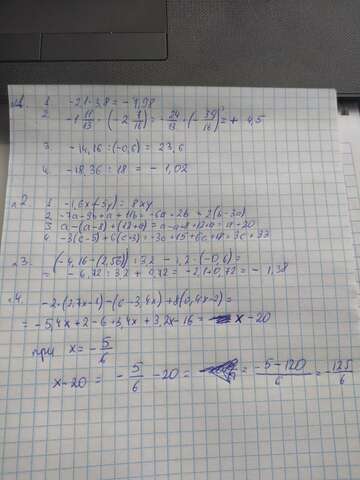 1. -2,1·3,8 = -7,98
2. -1 11/13 · (-2 7/16) = -24/13 · (-39/16) = + 4,5
3. -14,16 : (-0,6) = 23,6
4. -18,36 : 18 = -1,02
2. 1. -1,6x · (-5y) = 8xy
2. -7a - 9b + a + 11b = -6a + 2b = 2(b-3a)
3. a - (a-8) + (12+a) = a - a + 8 + 12 + a = a + 20
4. -3(c-5) + 6(c+3) = -3c + 15 + 6c + 18 = 3c + 33
3. (-4,16 - (-2,56)) : 3,2 - 1,2 · (-0,6) =
= -6,72 : 3,2 + 0,72 = -2,1 + 0,72 = -1,38
4. -2·(2,7x-1) - (6-3,4x) + 8(0,4x-2) =
= -5,4x + 2 - 6 + 3,4x + 3,2x - 16 = x - 20
при x = -5/6
x - 20 = -5/6 - 20 = = (-5-120)/6 = -125/6